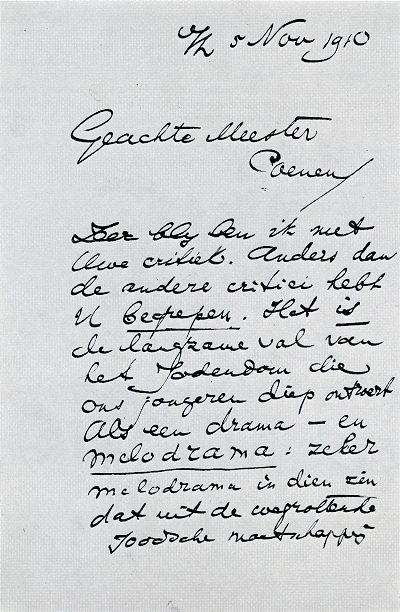 5 Nov 1910
Geachte Meester
Coenen
Zeer bly ben ik met
Uwe critiek. Anders dan
de andere critici hebt
U begrepen. Het is
de langzame val van
het Jodendom die
ons jongeren diep ontroert
Als een drama – en
melodrama : zeker
melodrama in dien zin
dat uit de wegrottende
Joodsche maatschappij